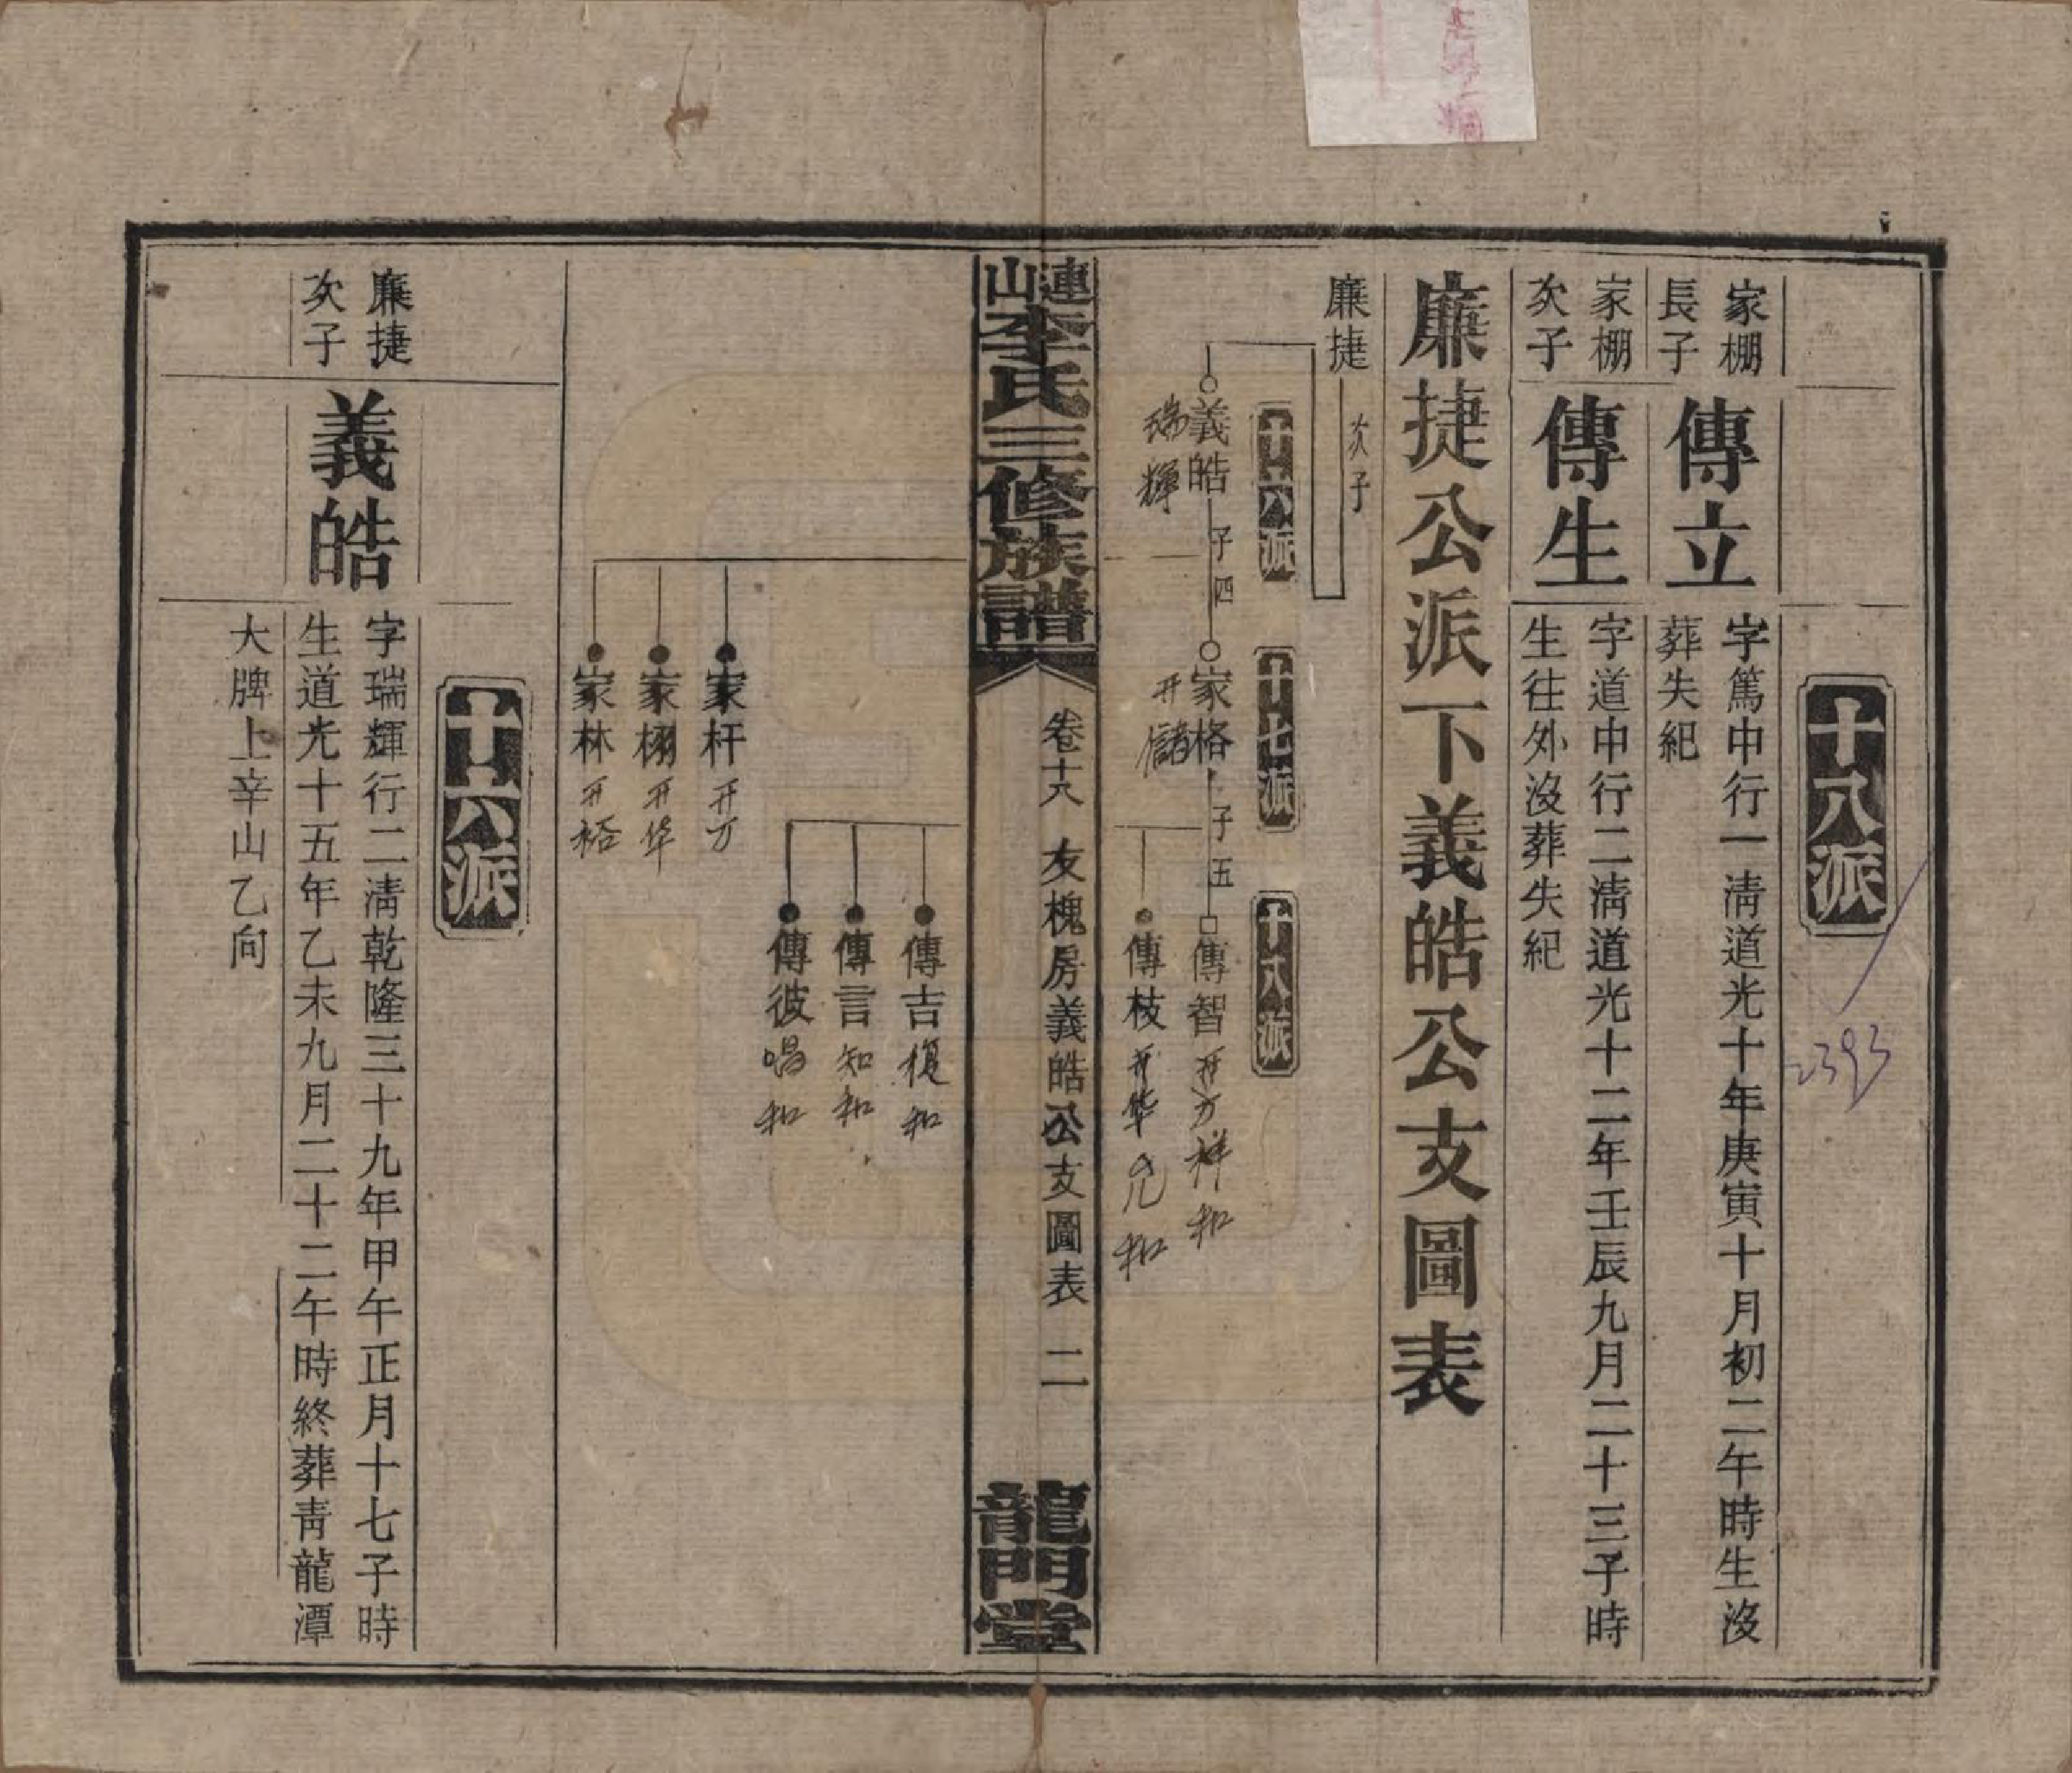 十八派
家棚
長子
傳立
字篤中行一清道光十年庚寅十月初二午時生沒
葬失紀
家棚
次子
傳生
字道中行二清道光十二年壬辰九月二十三子時
生往外沒葬失紀
廉捷公派下義皓公支圖表
廉捷
次子
十六派
十七派
十八派
義皓
子四
家格
子五
傳智
瑞輝
开儲
开万祥和
傳枝
开华兄和
連山李氏三修族譜
卷十八
友槐房義皓公支圖表
二
龍門堂
傳吉
復和
傳言
知和
傳彼
唱和
家杆
开万
家棚
开华
家林
开裕
十六派
廉捷
次子
義皓
字瑞輝行二淸乾隆三十九年甲午正月十七子時
生道光十五年乙未九月二十二午時終葬靑龍潭
大牌上辛山乙向
2393